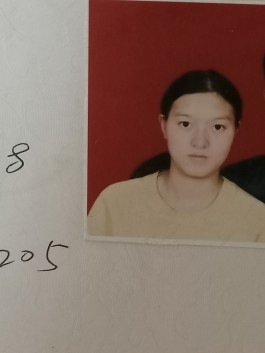 8
205